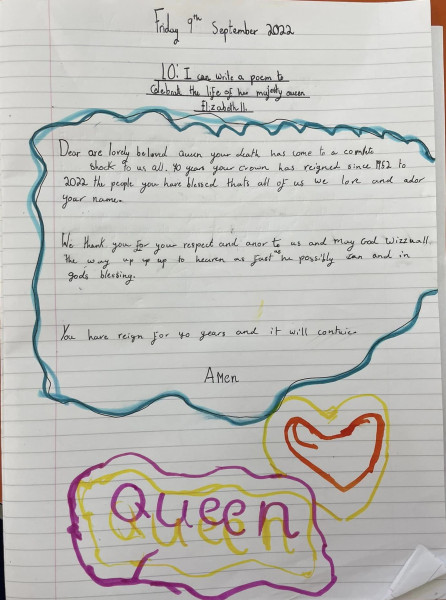 Friday 9th September 2022
LO: I can write a poem to
celebrate the life of her majesty queen
Elizabeth II.
Dear are lovely beloved queen your death has come to a complete
shock to us all. 70 years your crown has reigned since 1952 to
2022 the people you have blessed thats all of us we love and ador
your name.
We thank you for your respect and anor to us and may God wizz us all
the way up up up to heaven as fast he possibly can and in
gods blessing.
You have reign for 40 years and it will contuie.
Amen
Queen
Queen